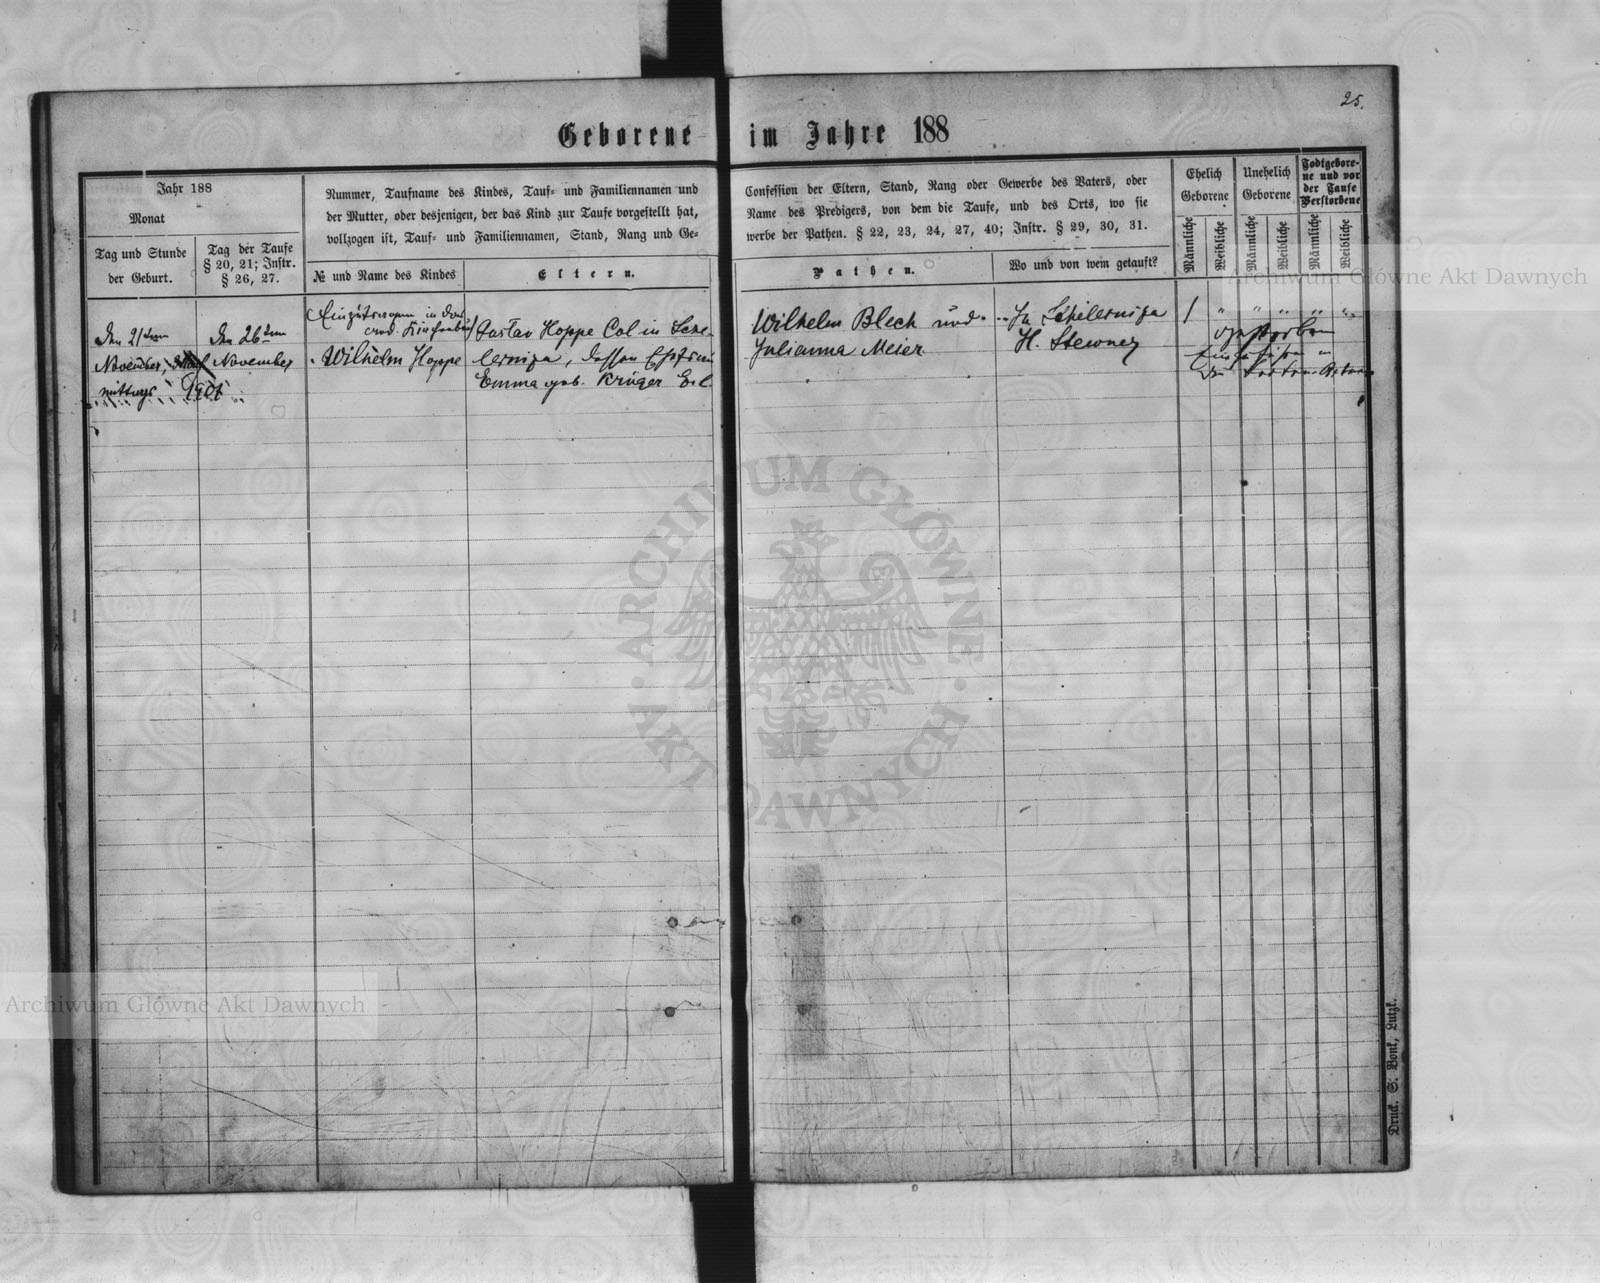 25.
Geborene im Jahre 188
Jahr 188
Monat
Tag und Stunde
der Geburt.
Tag der Taufe
§ 20, 21; Instr.
§ 26, 27.
Nummer, Taufname des Kindes, Tauf- und Familiennamen und
der Mutter, oder desjenigen, der das Kind zur Taufe vorgestellt hat,
vollzogen ist, Tauf- und Familiennamen, Stand, Rang und Ge-
№ und Name des Kindes
Eltern.
Confession der Eltern, Stand, Rang oder Gewerbe des Vaters, oder
Name des Predigers, von dem die Taufe, und des Orts, wo sie
werbe der Pathen. § 22, 23, 24, 27, 40; Instr. § 29, 30, 31.
Pathen.
Wo und von wem getauft?
Ehelich
Geborene
Unehelich
Geborene
Todtgebore-
ne und vor
der Taufe
Verstorbene
Männliche
Weibliche
Männliche
Weibliche
Männliche
Weibliche
Den 21ten
November,
mittags
Den 26ten
November
1901
Wilhelm Hoppe
Gustav Hoppe Col. in
dessen Ehefrau
Emma geb. Krüger
Wilhelm Blech und
Julianna Meier
In
H. Stewner
1 " " " " "
Druck. S. Bonk, Lutzk.
Archiwum Główne Akt Dawnych
ARCHIWUM GŁÓWNE · AKT DAWNYCH ·
Archiwum Główne Akt Dawnych